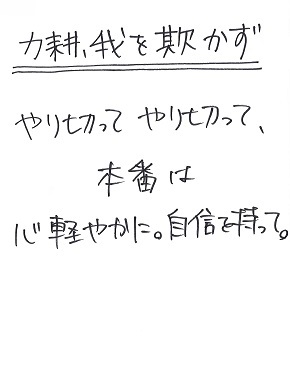 力耕、我を欺かず
やり切って やり切って、
本番は
心軽やかに。自信を持って。